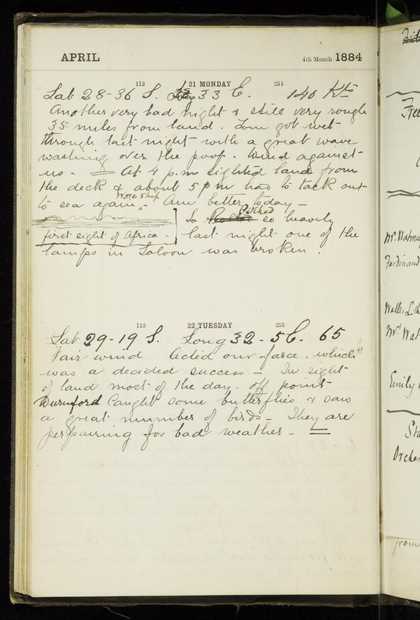 APRIL 4th Month 1884
112 21 MONDAY 254
Lat 28-36 S. 33 E. 140 Kts
Another very bad night & still very rough
35 miles from land. Tom got wet
through last night with a great wave
washing over the poop. Wind against
us. — At 4 p.m sighted land from
the deck & about 5 pm had to tack out
to sea again. Ann better today —
first sight of Africa.
So heavily
last night one of the
lamps in Saloon was broken.
113 22 TUESDAY 253
Lat 29-19 S. Long 32-5 E. 65
Fair wind Acted our farce. which
was a decided success — In sight
of land most of the day. off point
Durnford Caught some butterflies & saw
a great number of birds — They are
preparing for bad weather —
Free
Ferdinand
Emily
from